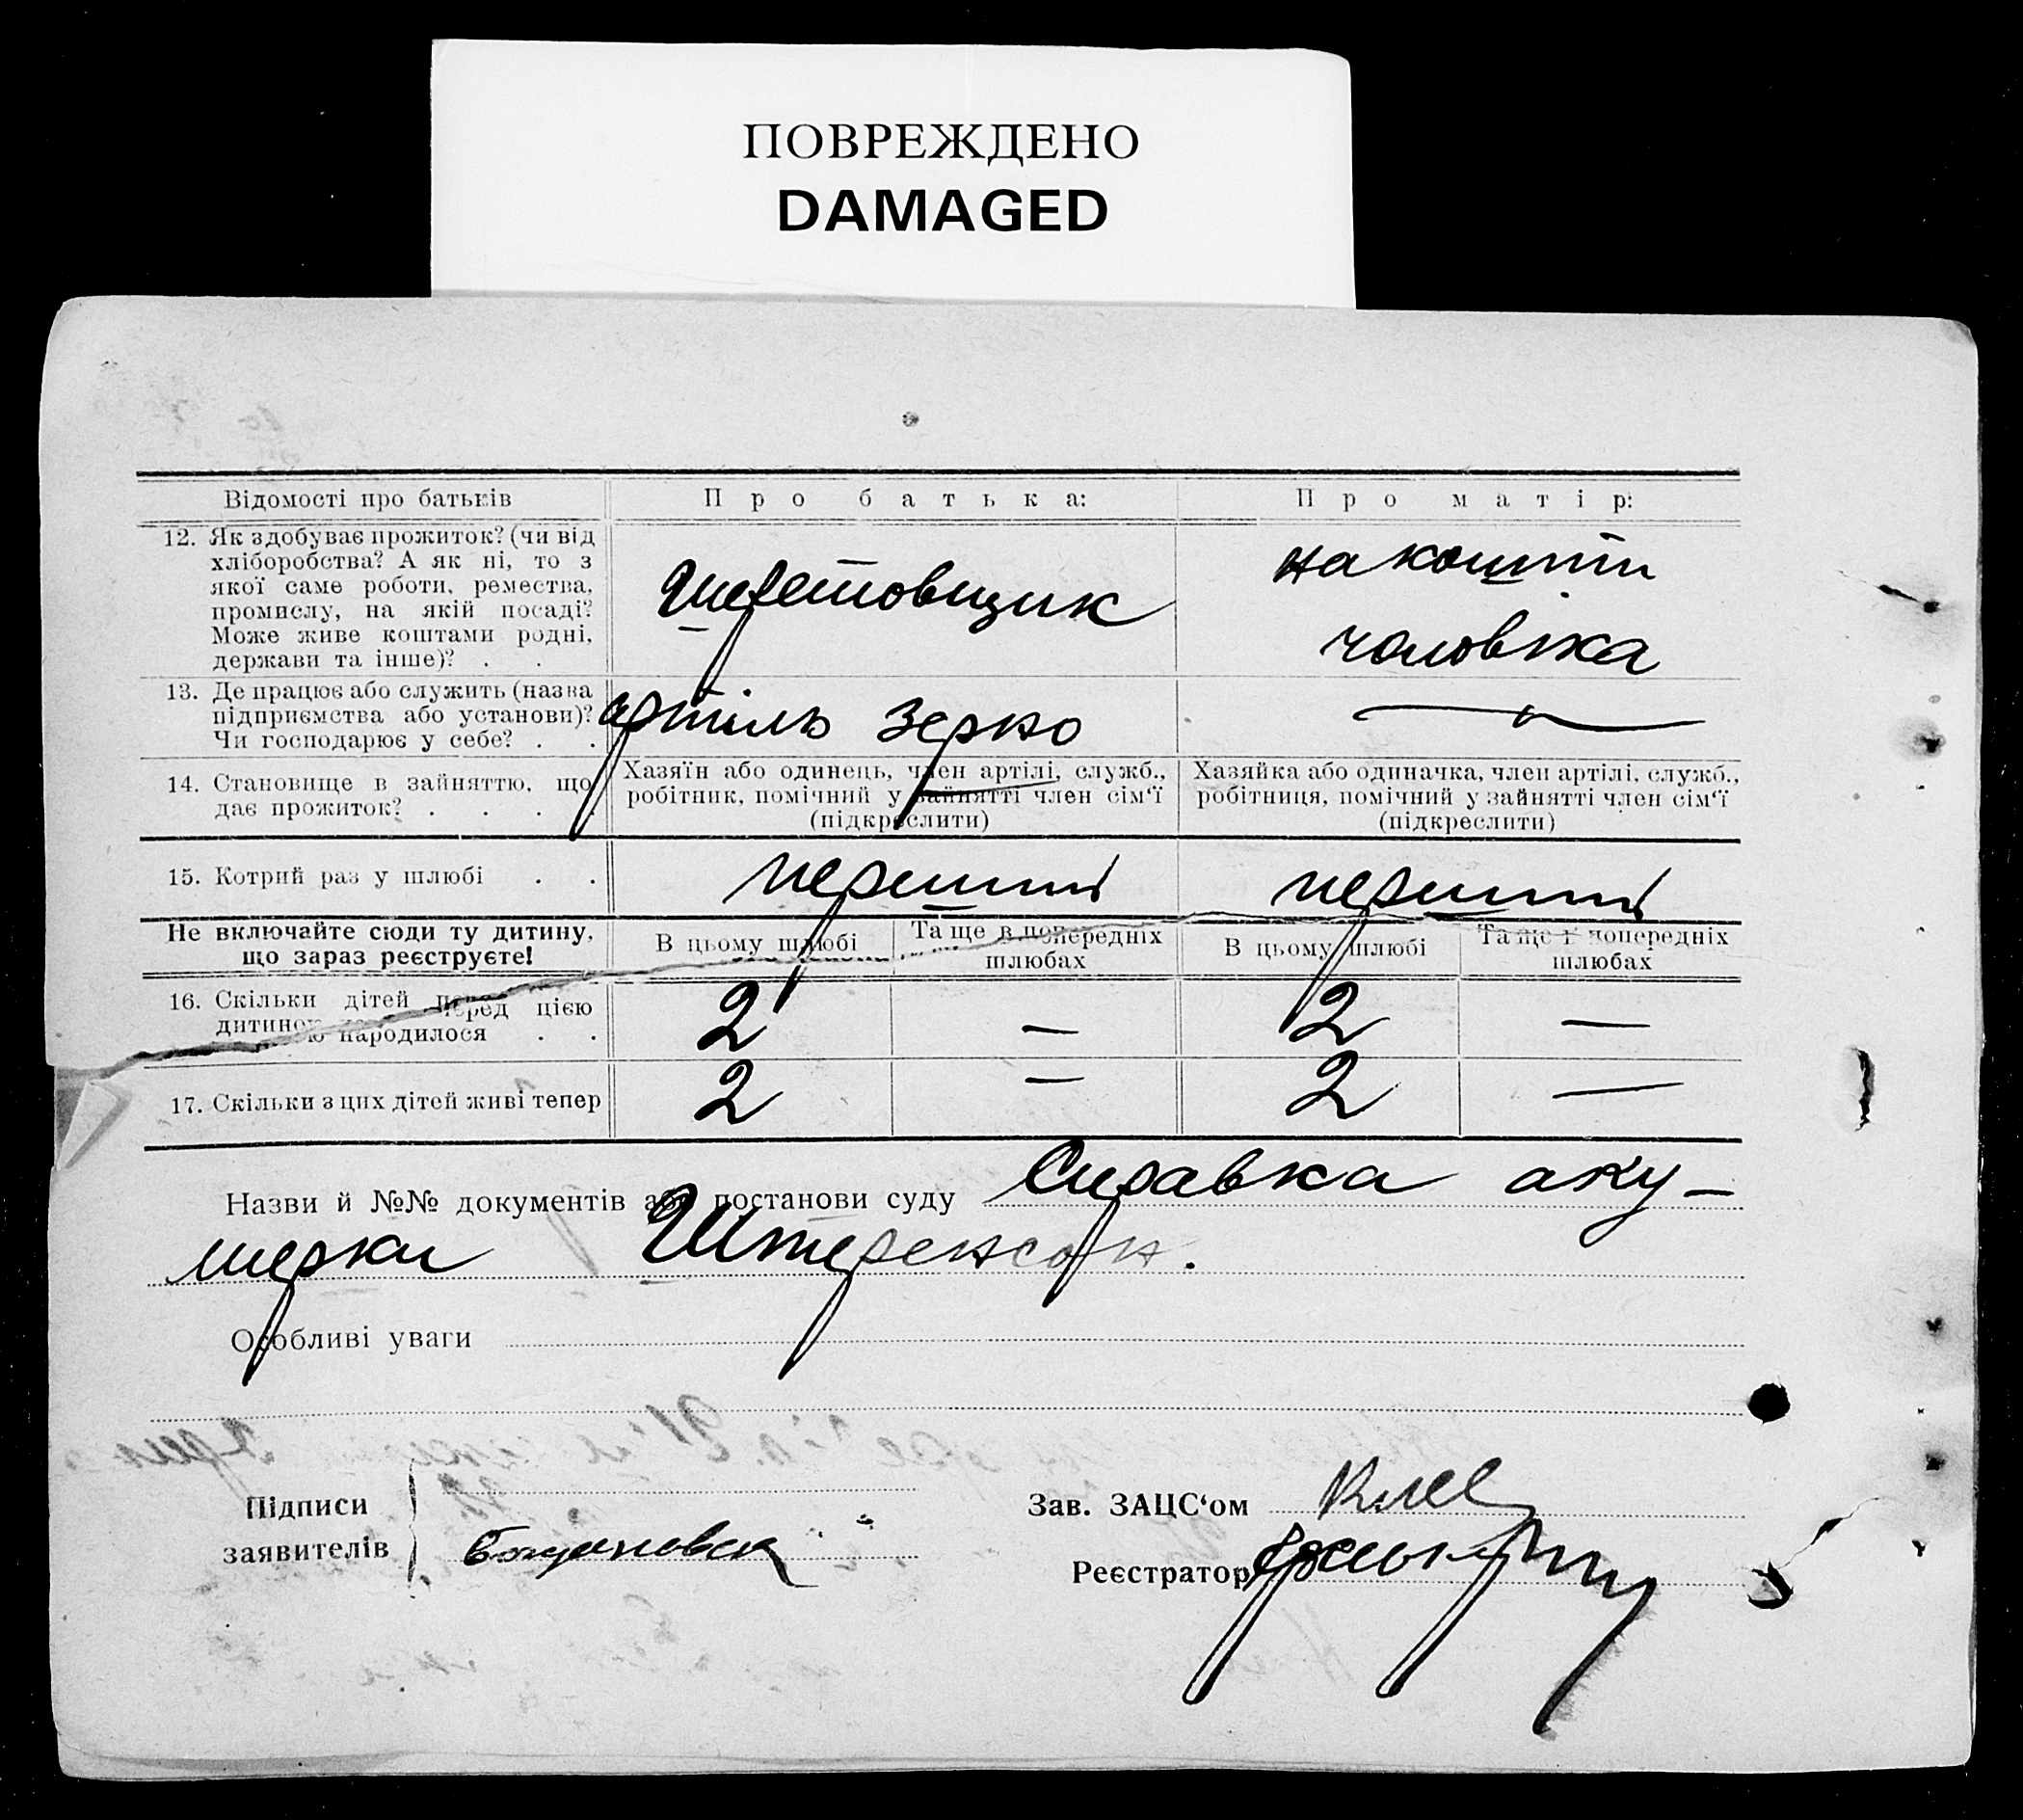 ПОВРЕЖДЕНО
DAMAGED
Відомості про батьків
Про батька:
Про матір:
12. Як здобуває прожиток? (чи від
хліборобства? А як ні, то з
якої саме роботи, ремества,
промислу, на якій посаді?
Може живе коштами родні,
держави та інше)? . .
Шеретовщик
на кошти
чоловіка
13. Де працює або служить (назва
підприємства або установи)?
Чи господарює у себе? . .
артіль Зерно
—
14. Становище в зайняттю, що
дає прожиток? . . . .
Хазяїн або одинець, член артілі, служб.,
робітник, помічний у зайнятті член сім‘ї
(підкреслити)
Хазяйка або одиначка, член артілі, служб.,
робітниця, помічний у зайнятті член сім‘ї
(підкреслити)
15. Котрий раз у шлюбі . .
перший
перший
Не включайте сюди ту дитину,
що зараз реєструєте!
В цьому шлюбі
Та ще в попередніх
шлюбах
В цьому шлюбі
Та ще в попередніх
шлюбах
16. Скільки дітей перед цією
дитиною народилося . .
2
—
2
—
17. Скільки з цих дітей живі тепер
2
—
2
—
Назви й №№ документів або постанови суду Справка аку-
шерки Штеренсон.
Особливі уваги
Підписи
заявителів
Зав. ЗАЦС‘ом
Реєстратор